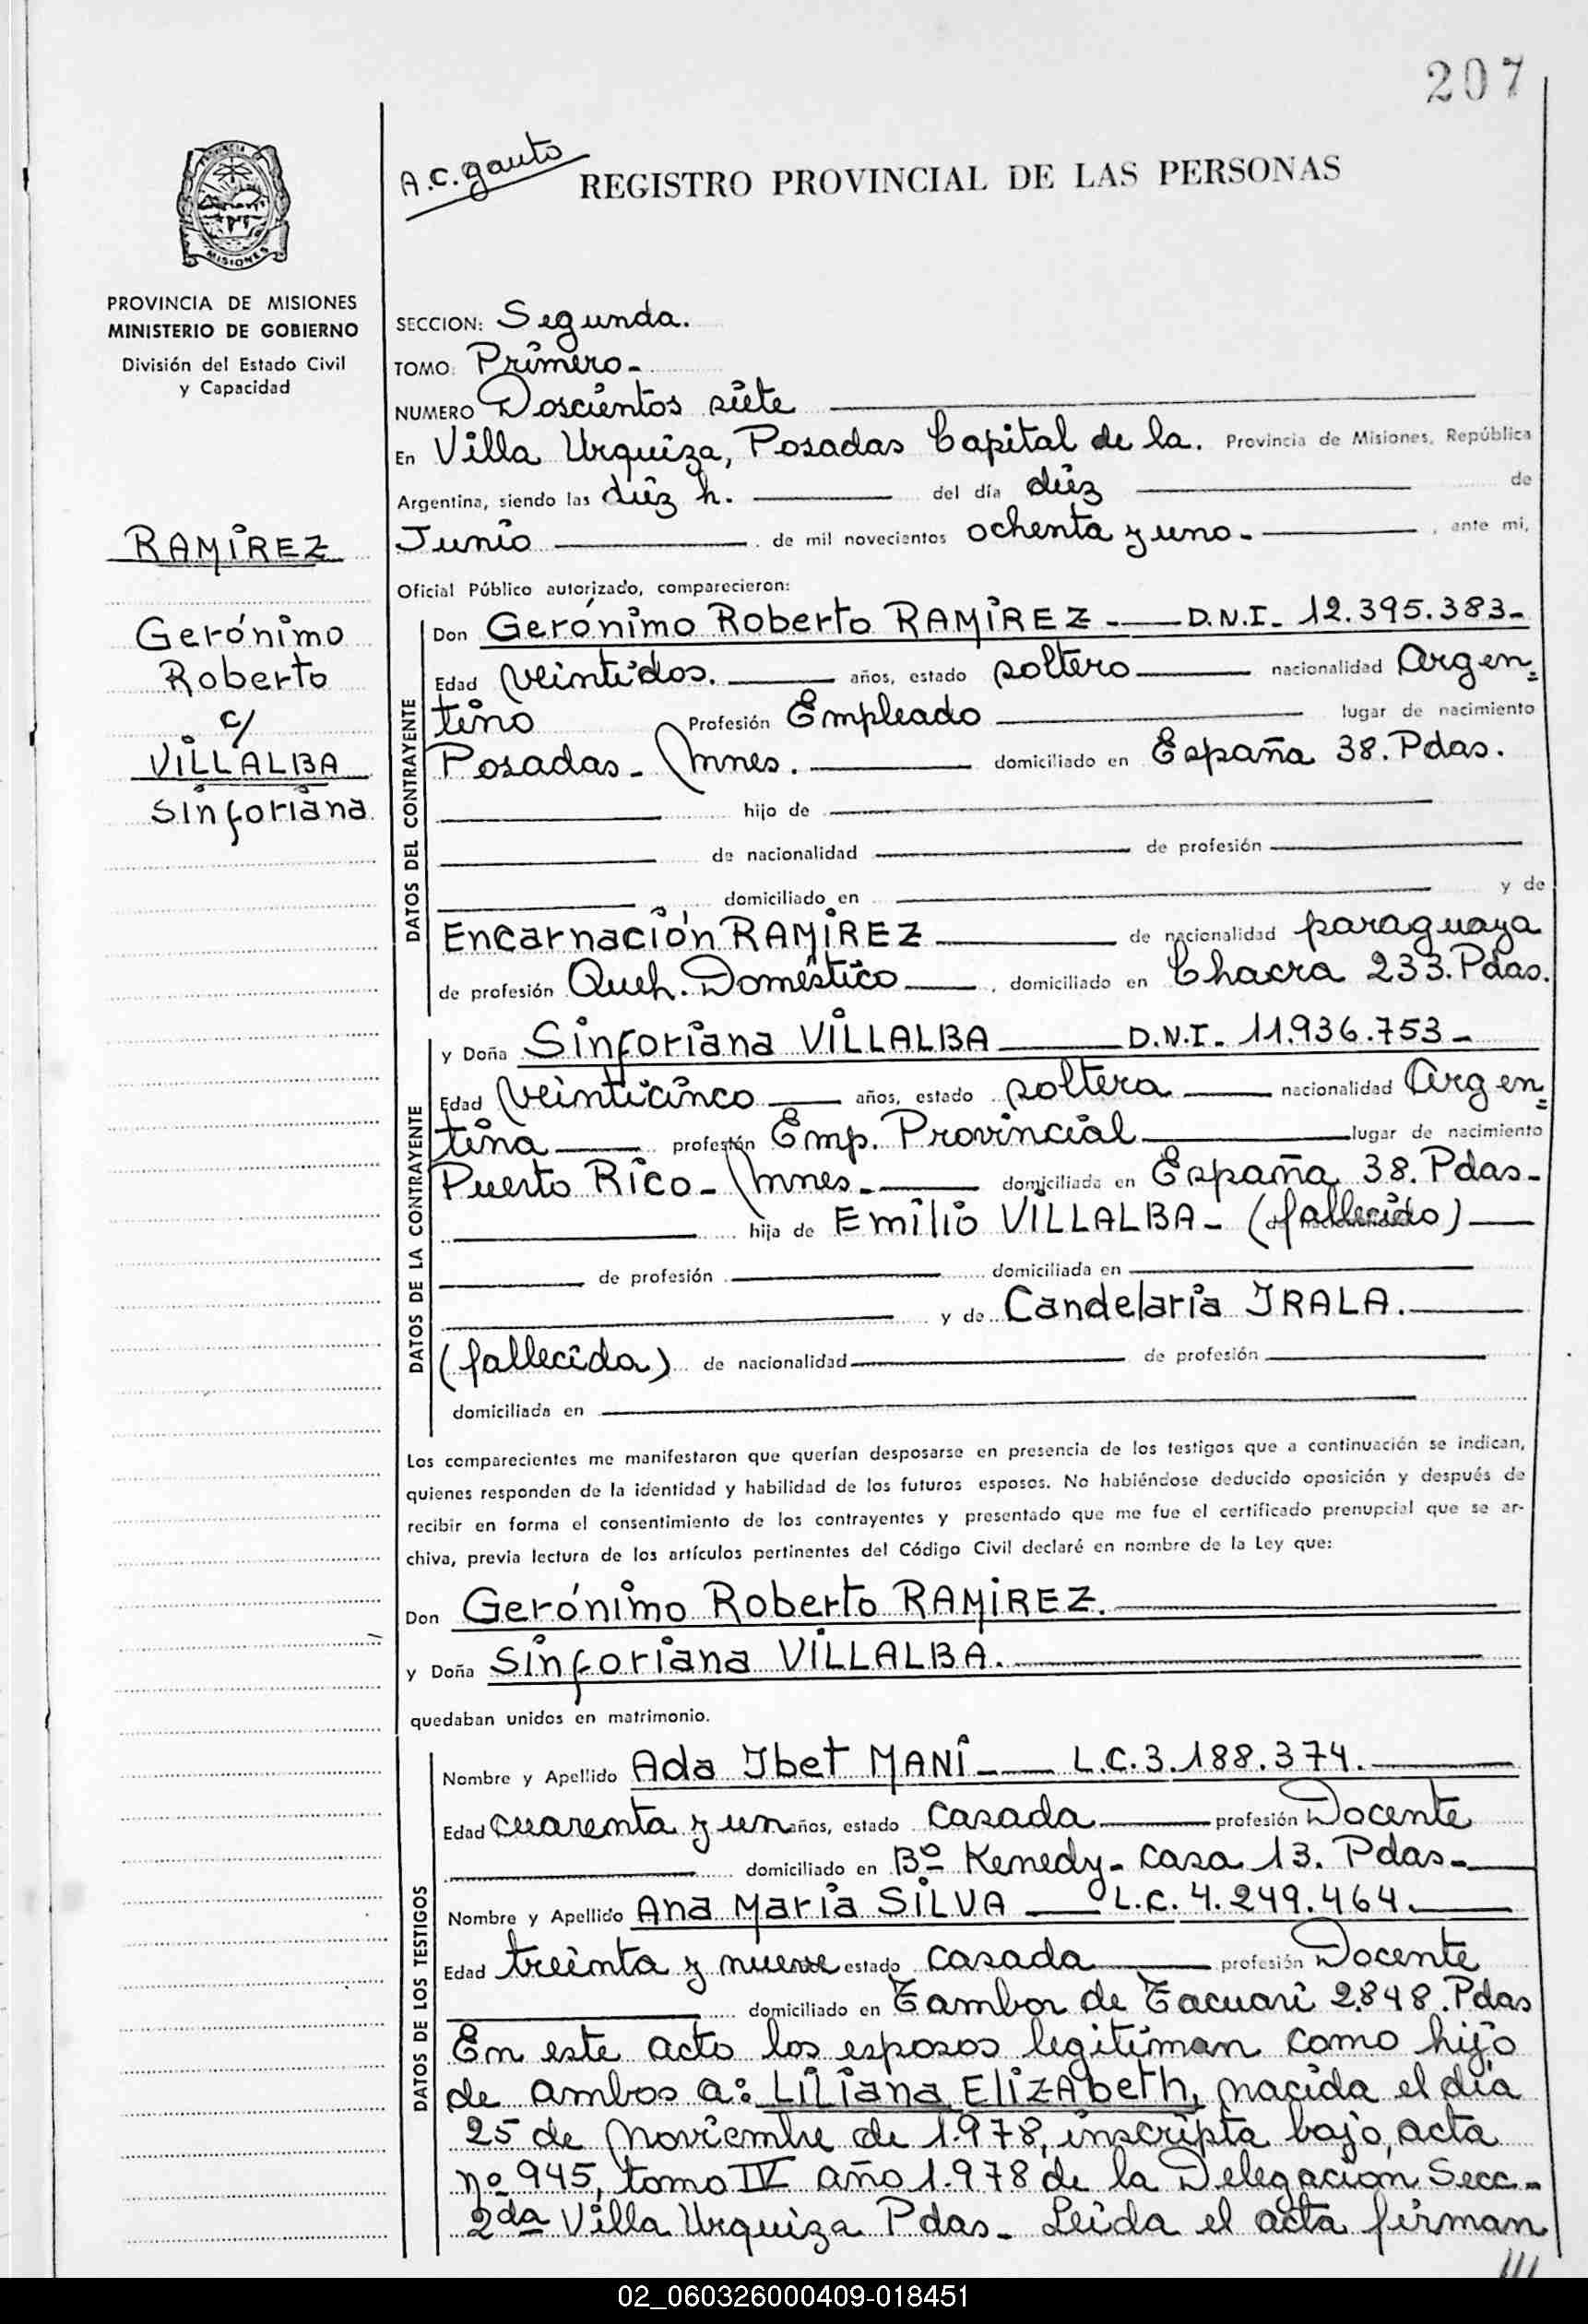 207
A.C. gauto
REGISTRO PROVINCIAL DE LAS PERSONAS
PROVINCIA
MISIONES
PROVINCIA DE MISIONES
MINISTERIO DE GOBIERNO
División del Estado Civil
y Capacidad
RAMIREZ
Gerónimo
Roberto
c/
VILLALBA
Sinforiana
SECCION: Segunda.
TOMO: Primero-
NUMERO Doscientos siete
En Villa Urquiza, Posadas Capital de la. Provincia de Misiones, República
Argentina, siendo las diéz h. del día diéz de
Junio de mil novecientos ochenta y uno- , ante mi,
Oficial Público autorizado, comparecieron:
DATOS DEL CONTRAYENTE
Don Gerónimo Roberto RAMIREZ- D.N.I- 12.395.383-
Edad veintidos. años, estado soltero nacionalidad Argen=
tino Profesión Empleado lugar de nacimiento
Posadas- Mnes. domiciliado en España 38. Pdas.
hijo de
de nacionalidad de profesión
domiciliado en y de
Encarnación RAMIREZ de nacionalidad paraguaya
de profesión Queh. Doméstico , domiciliado en Chacra 233. Pdas.
DATOS DE LA CONTRAYENTE
y Doña Sinforiana VILLALBA D.N.I- 11.936.753-
Edad veinticinco años, estado soltera nacionalidad Argen=
tina profesión Emp. Provincial lugar de nacimiento
Puerto Rico- Mnes- domiciliada en España 38. Pdas-
hija de Emilio VILLALBA- (fallecido)
de profesión domiciliada en
y de Candelaria IRALA.
(fallecida) de nacionalidad de profesión
domiciliada en
Los comparecientes me manifestaron que querían desposarse en presencia de los testigos que a continuación se indican,
quienes responden de la identidad y habilidad de los futuros esposos. No habiéndose deducido oposición y después de
recibir en forma el consentimiento de los contrayentes y presentado que me fue el certificado prenupcial que se ar-
chiva, previa lectura de los artículos pertinentes del Código Civil declaré en nombre de la Ley que:
Don Gerónimo Roberto RAMIREZ.
y Doña Sinforiana VILLALBA.
quedaban unidos en matrimonio.
DATOS DE LOS TESTIGOS
Nombre y Apellido Ada Ibet MANI- L.C. 3.188.374.
Edad cuarenta y un años, estado casada profesión Docente
domiciliado en Bº Kenedy- casa 13. Pdas-
Nombre y Apellido Ana María SILVA L.C. 4.249.464.
Edad treinta y nueve estado casada profesión Docente
domiciliado en Tambor de Tacuari 2.848. Pdas
En este acto los esposos legitiman como hijo
de ambos a: Liliana ElizAbeth, nacida el día
25 de Noviembre de 1.978, inscripta bajo, acta
nº 945, tomo IV año 1.978 de la Delegación Secc-
2da Villa Urquiza Pdas- Leida el acta firman
///
02_060326000409-018451